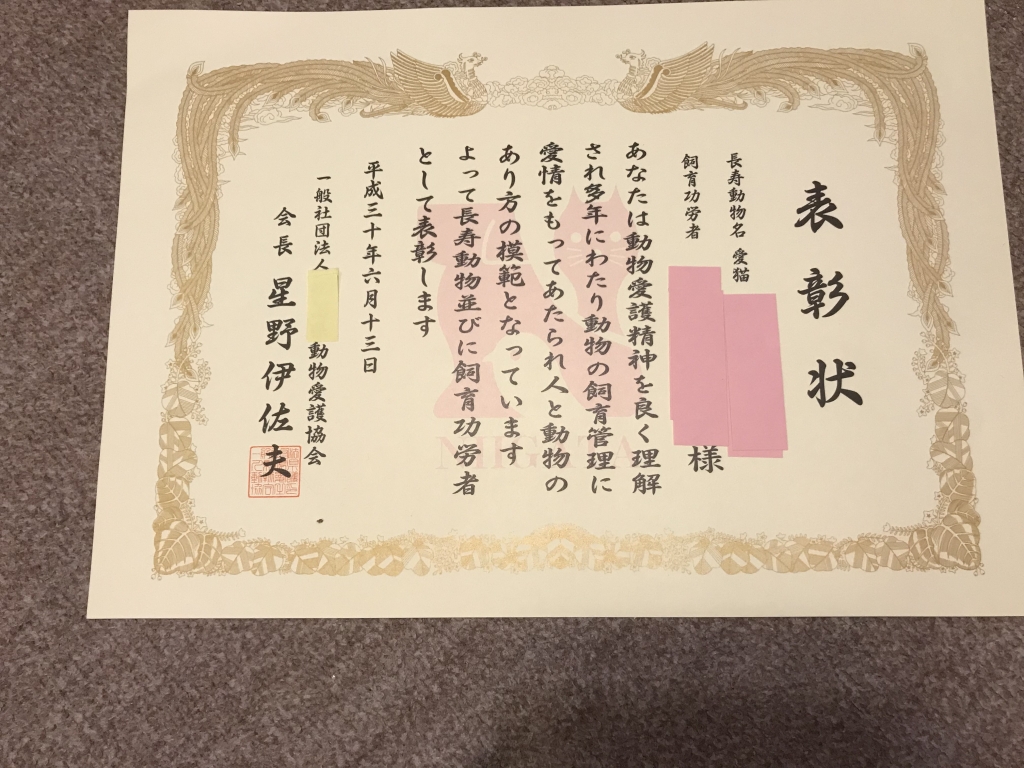 表彰状
長寿動物名 愛猫
飼育功労者
様
あなたは動物愛護精神を良く理解
され多年にわたり動物の飼育管理に
愛情をもってあたられ人と動物の
あり方の模範となっています
よって長寿動物並びに飼育功労者
として表彰します
平成三十年六月十三日
一般社団法人
動物愛護協会
会長 星野伊佐夫